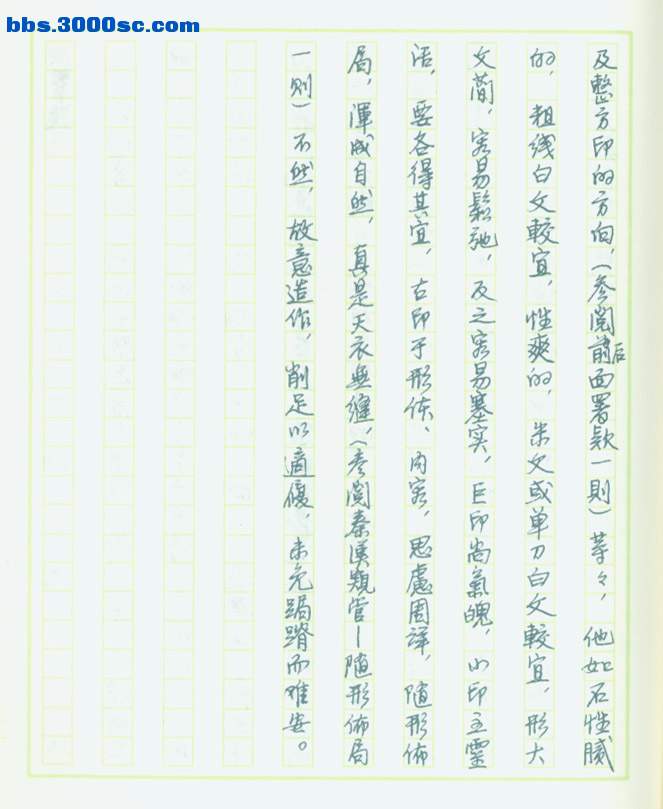 bbs.3000sc.com
及整方印的方向,(参阅前后面署款一則)等々,他如石性膩
的,粗线白文較宜,性爽的,朱文或单刀白文較宜,形大
文簡,容易鬆弛,反之容易塞实,巨印尚氣魄,小印主靈
活,要各得其宜,古印于形体、内容,思慮周详,随形佈
局,渾成自然,真是天衣無缝,(参阅秦漢窺管—随形佈局
一则)不然,故意造作,削足以適履,未免跼蹐而难安。